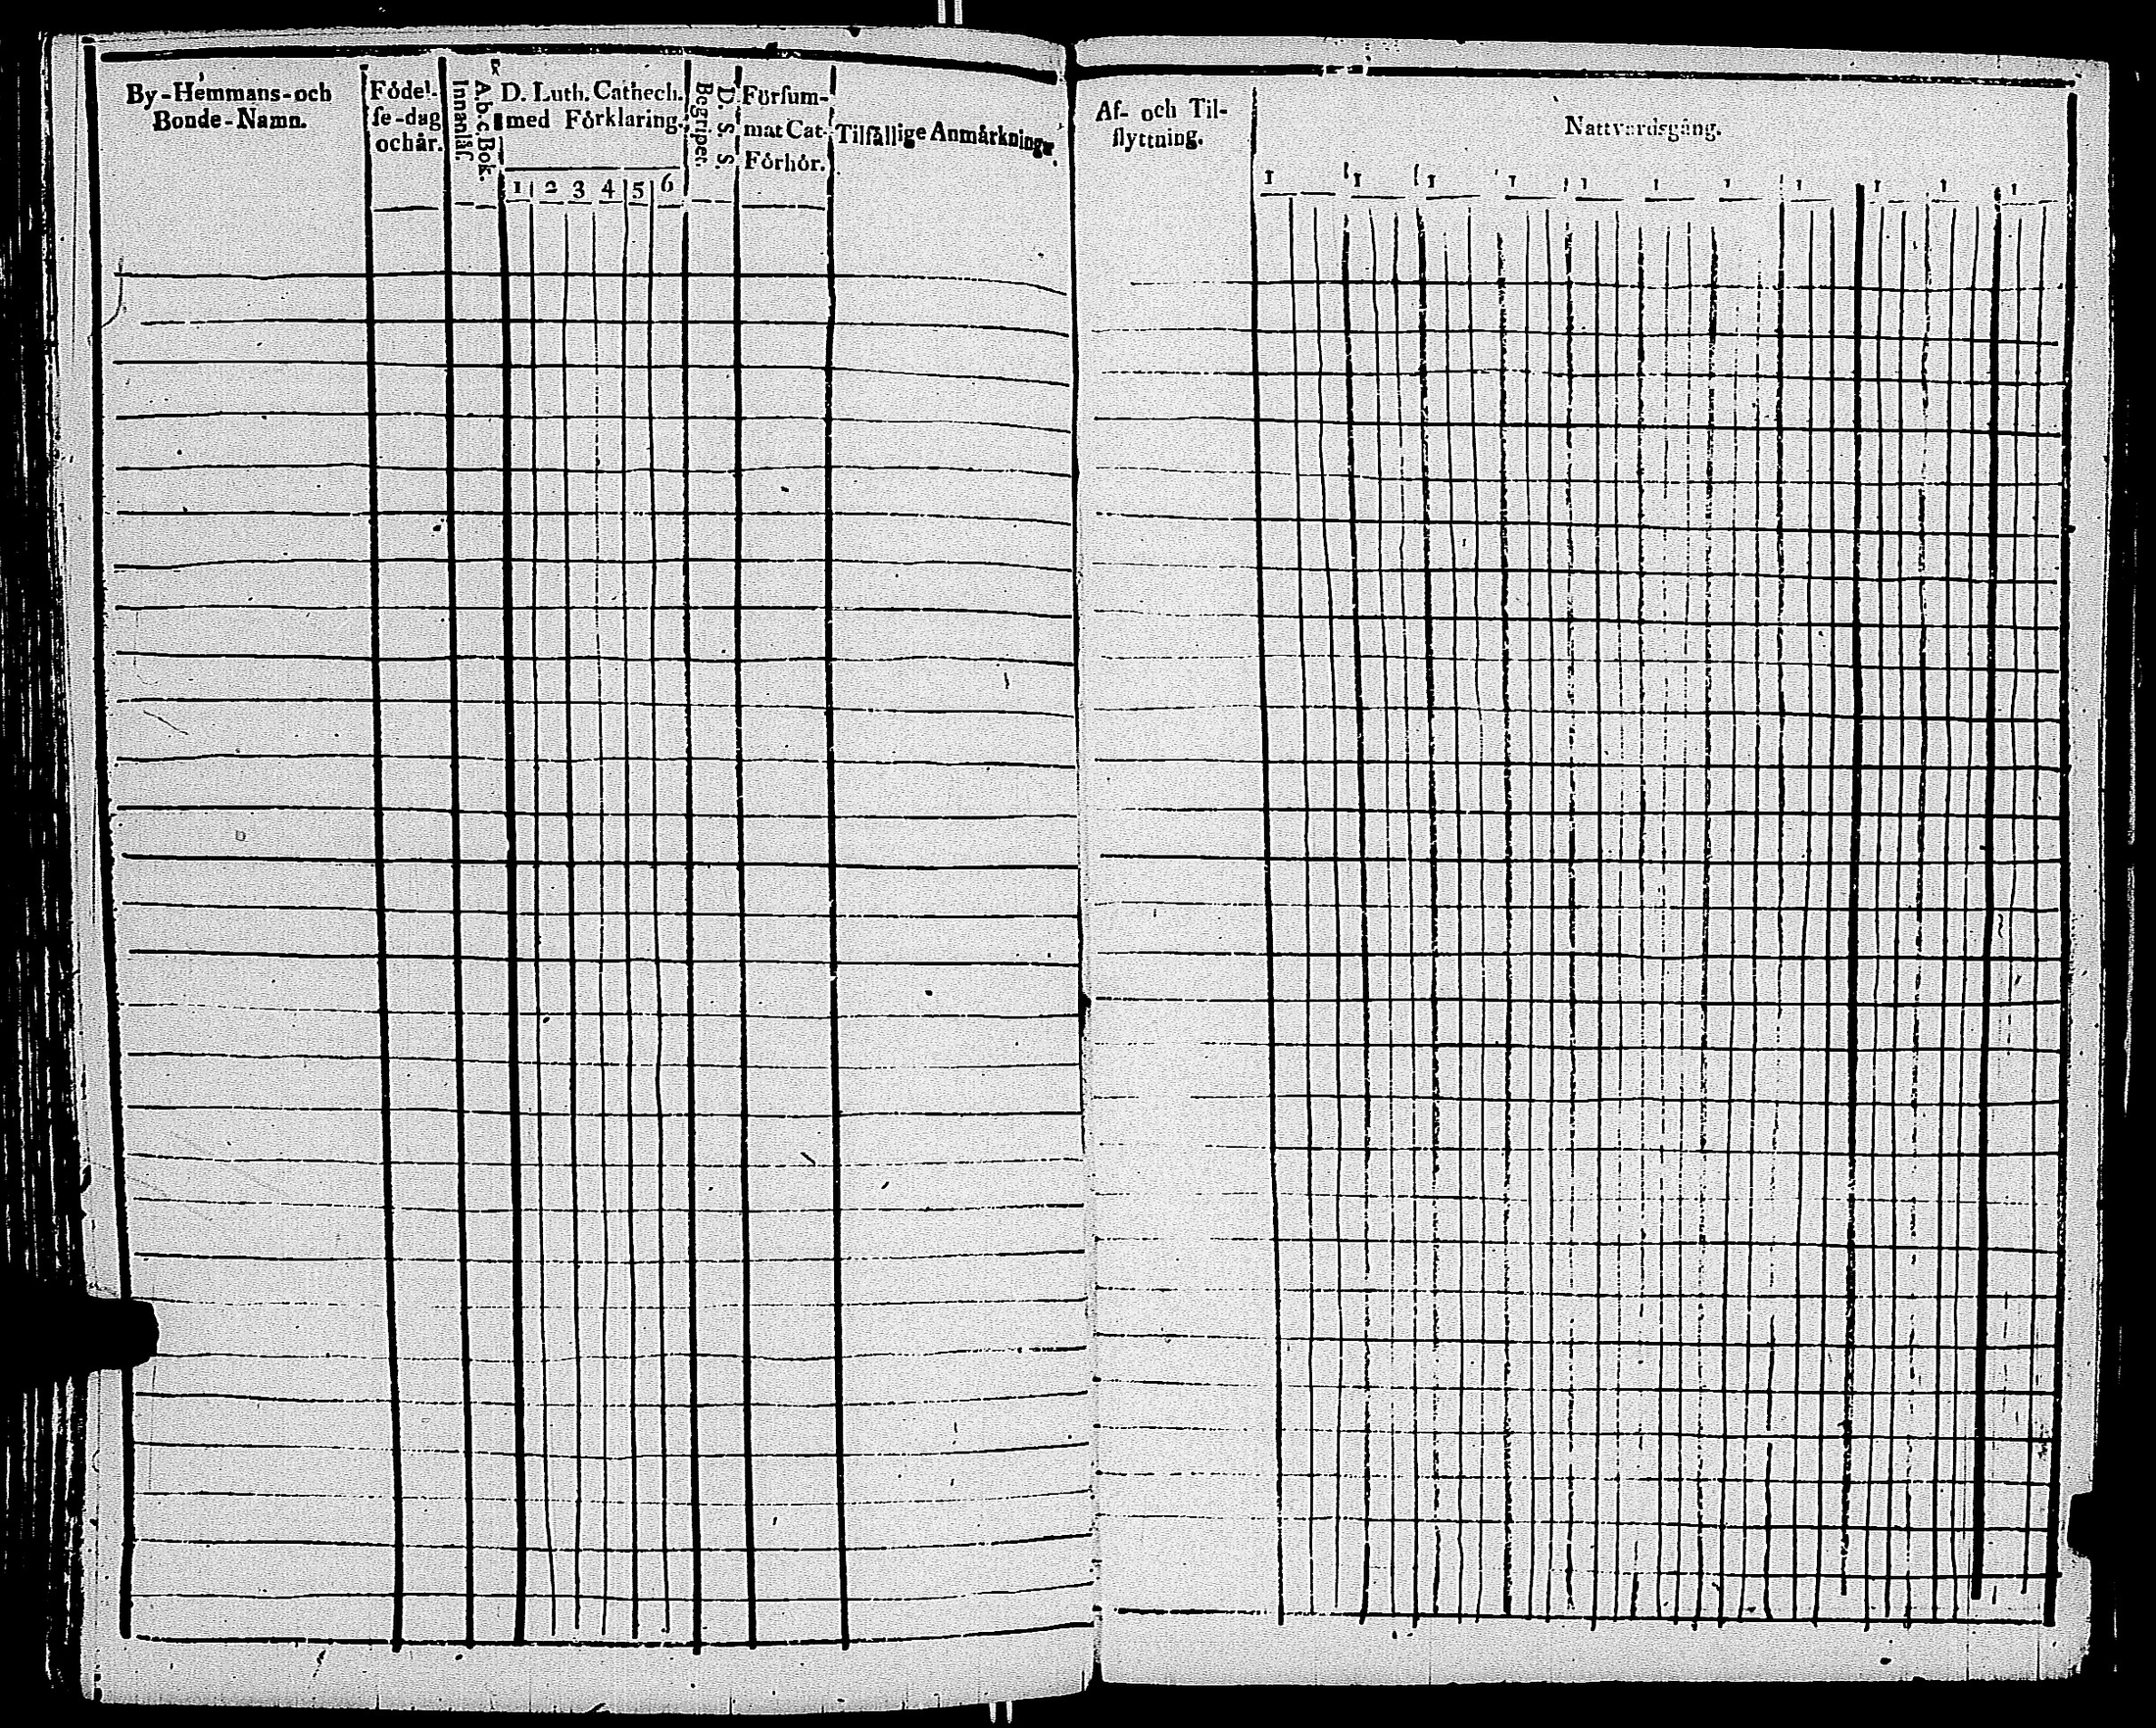 By-Hemmans-och
Bonde-Namn.
Födel-
se-dag
och år.
A.b.c. Bok.
Innanläs.
D. Luth. Cathech.
med Förklaring.
1 2 3 4 5 6
D. S. S.
Begriper.
Försum-
mat Cat-
Förhör.
Tilfällige Anmärkningar.
Af- och Til-
flyttning.
Nattvardsgång.
1 1 1 1 1 1 1 1 1 1 1